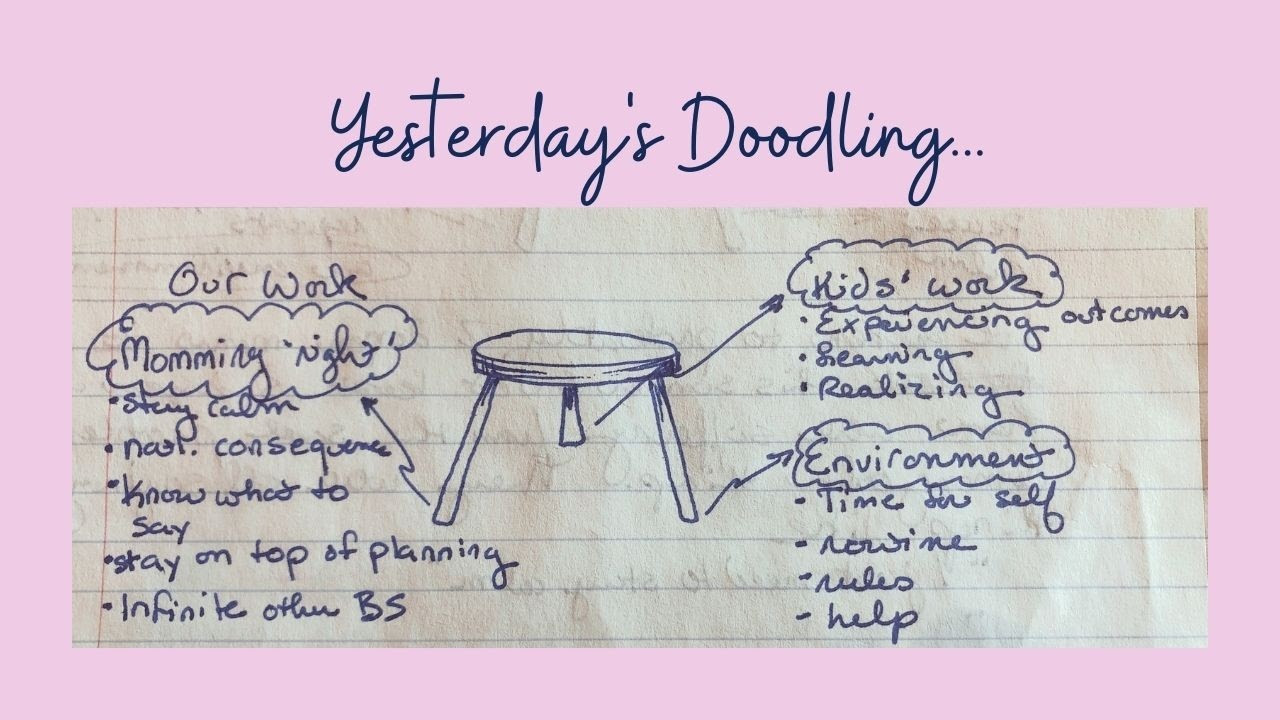 Yesterday's Doodling...
Our Work
Momming 'right'
• Stay calm
• nat. consequence
• Know what to
say
• stay on top of planning
• Infinite other BS
Kids' work
• Experiencing outcomes
• Learning
• Realizing
Environment
- Time for self
- routine
- rules
- help